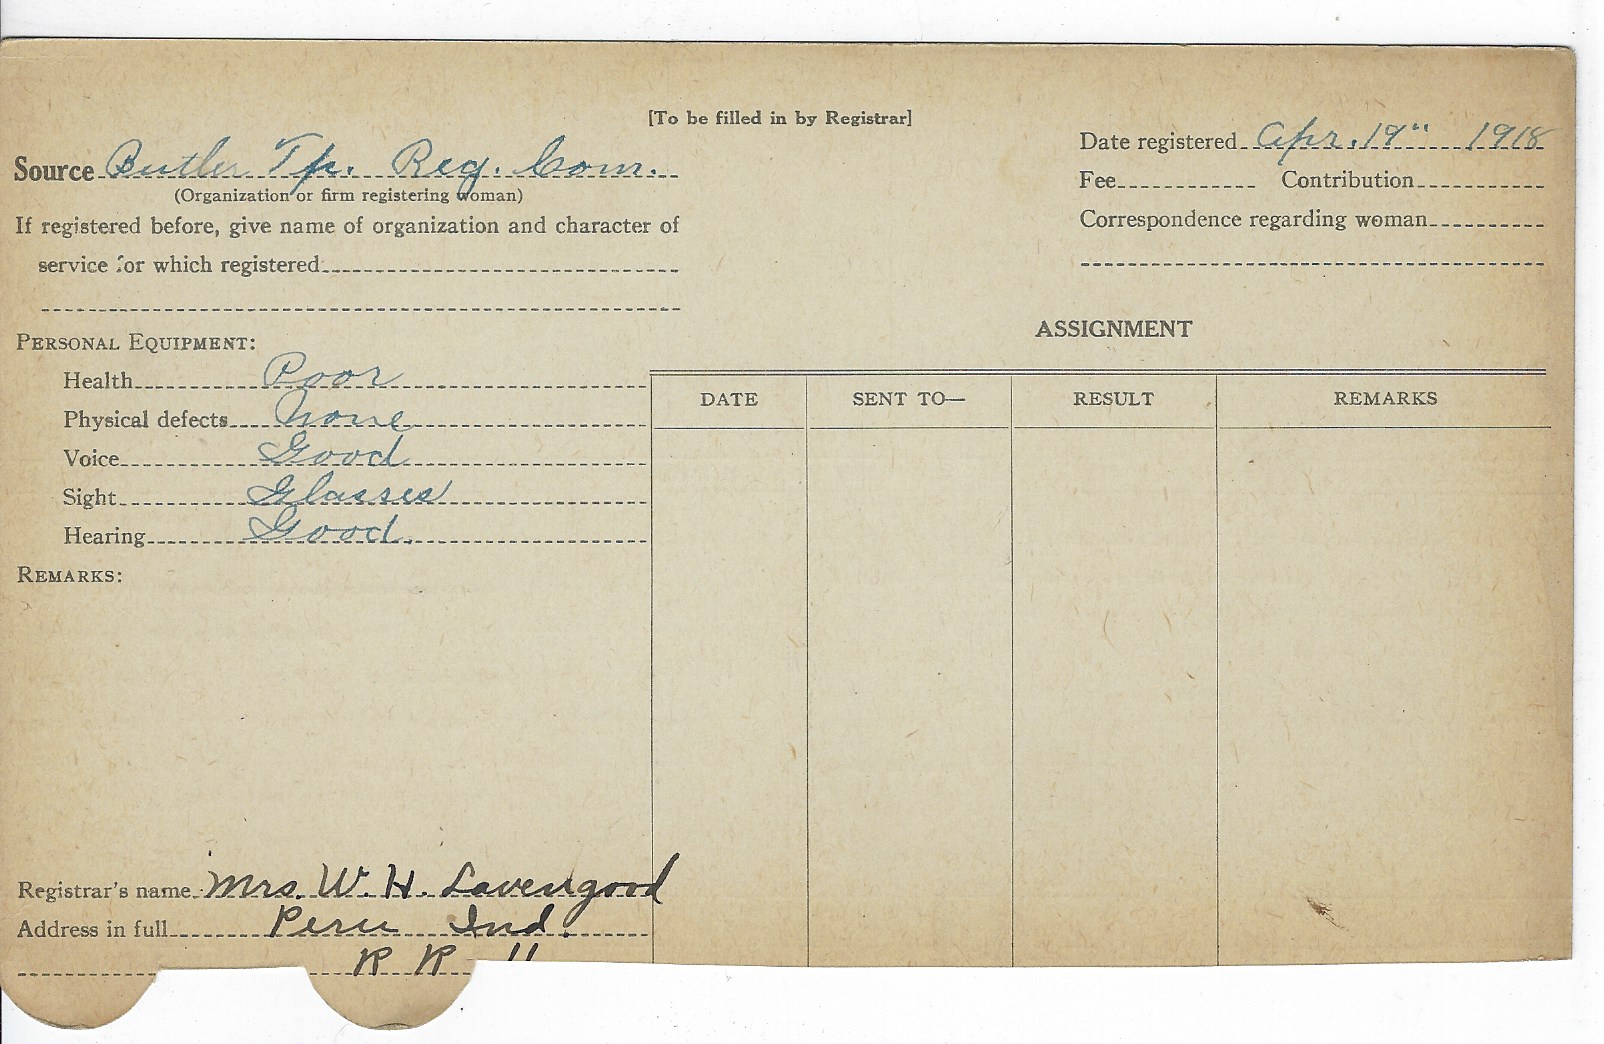 [To be filled in by Registrar]
Source Butler Tp. Reg. Com.
(Organization or firm registering woman)
If registered before, give name of organization and character of
service for which registered
Date registered Apr. 19" 1918
Fee Contribution
Correspondence regarding woman
PERSONAL EQUIPMENT:
Health Poor
Physical defects None
Voice Good
Sight Glasses
Hearing Good.
REMARKS:
ASSIGNMENT
DATE SENT TO— RESULT REMARKS
Registrar's name Mrs. W. H. Lavengood
Address in full Peru Ind.
R R 11